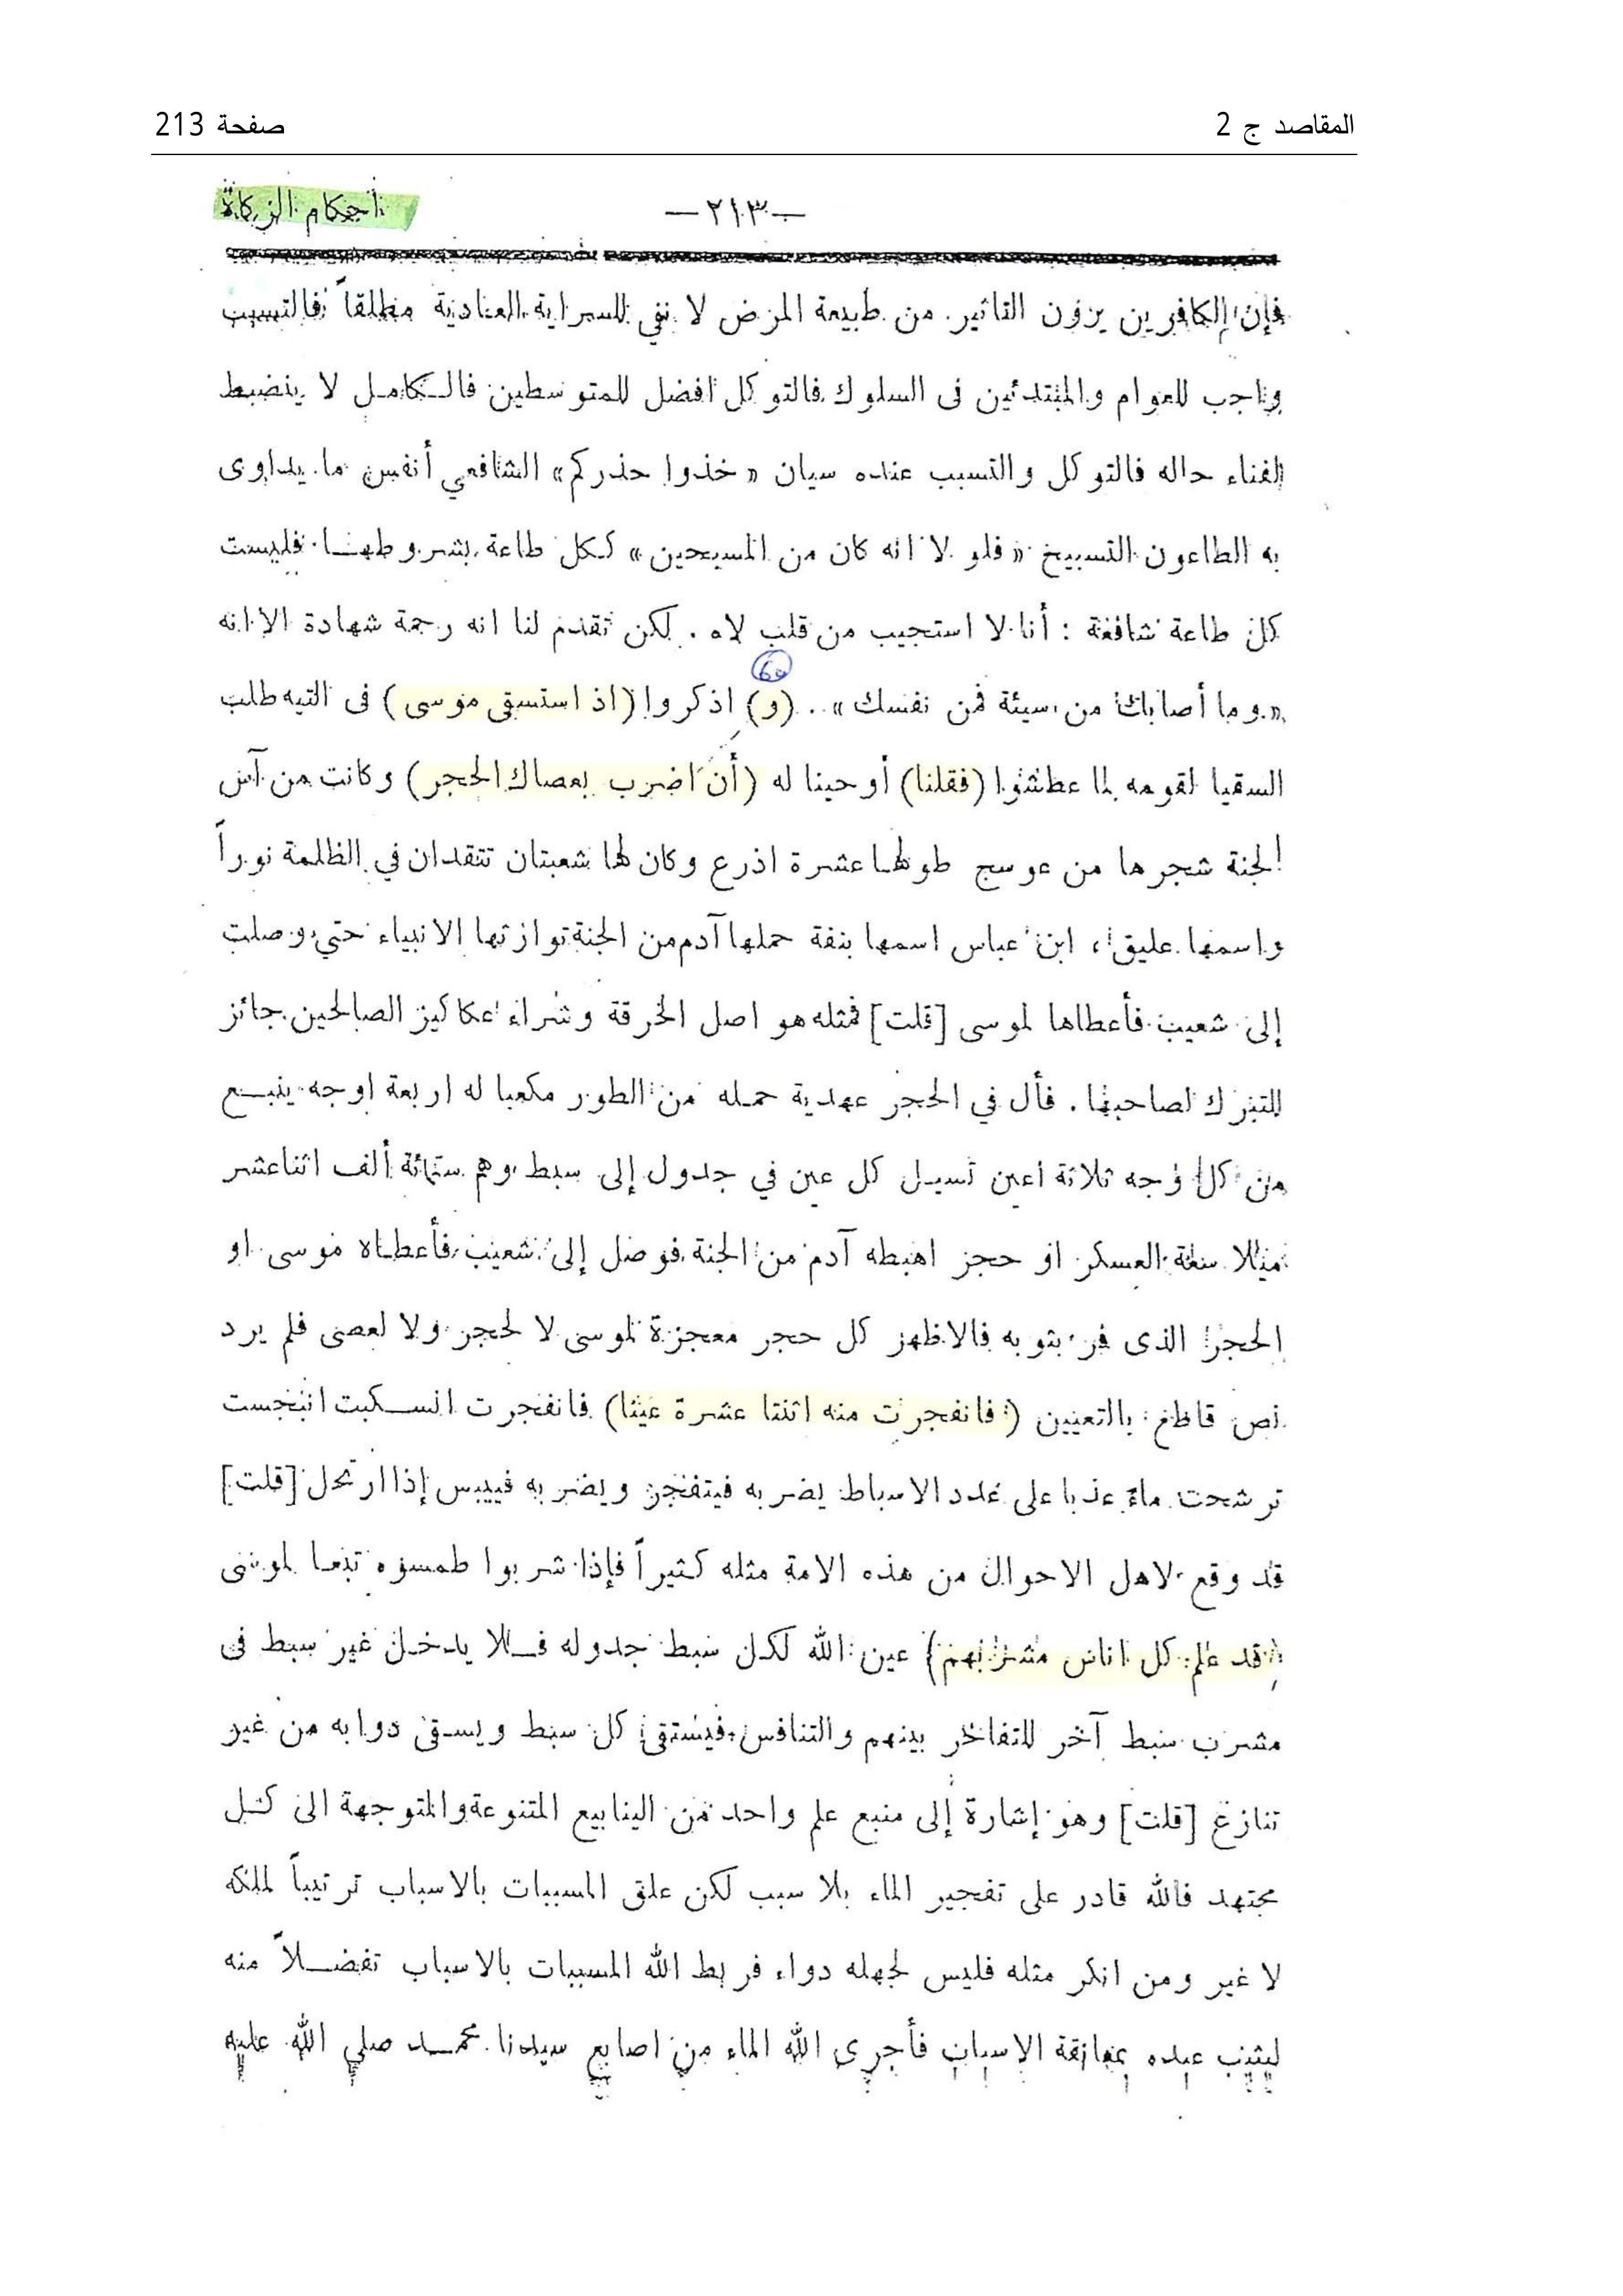 المقاصد ج 2
صفحة 213
أحكام الزكاة
— ٢١٣ —
فإن الكافرين يرون التاثير من طبيعة المرض لا نفي للسراية العادية مطلقاً فالتسبب
واجب للعوام والمبتدئين فى السلوك فالتوكل افضل للمتوسطين فالكامل لا ينضبط
لفناء حاله فالتوكل والتسبب عنده سيان « خذوا حذركم» الشافعي أنفس ما يداوى
به الطاعون التسبيح « فلو لا انه كان من المسبحين» ككل طاعة بشروطها فليست
كل طاعة شافعة : أنا لا استجيب من قلب لاه . لكن تقدم لنا انه رحمة شهادة الا انه
« وما أصابك من سيئة فمن نفسك» .. (و) اذكروا (اذ استسقى موسى) فى التيه طلب
60
السقيا لقومه لما عطشوا (فقلنا) أوحينا له (أن اضرب بعصاك الحجر) وكانت من آس
الجنة شجرها من عوسج طولها عشرة اذرع وكان لها شعبتان تتقدان في الظلمة نوراً
واسمها عليق ، ابن عباس اسمها بنفة حملها آدم من الجنة توارثها الانبياء حتى وصلت
إلى شعيب فأعطاها لموسى [قلت] فمثله هو اصل الخرقة وشراء عكاكيز الصالحين جائز
للتبرك لصاحبها . فأل في الحجر عهدية حمله من الطور مكعبا له اربعة اوجه ينبع
من كل وجه ثلاثة اعين تسيل كل عين في جدول إلى سبط وهم ستمائة ألف اثنا عشر
ميلا سعة العسكر او حجر اهبطه آدم من الجنة فوصل إلى شعيب فأعطاه موسى او
الحجر الذى فر بثوبه فالاظهر كل حجر معجزة لموسى لا لحجر ولا لعصى فلم يرد
نص قاطع بالتعيين (فانفجرت منه اثنتا عشرة عينا) فانفجرت انسكبت انبجست
ترشحت ماء عذبا على عدد الاسباط يضربه فيتفجر ويضربه فييبس إذا ارتحل [قلت]
قد وقع لاهل الاحوال من هذه الامة مثله كثيراً فإذا شربوا طمسوه تبعا لموسى
(قد علم كل اناس مشربهم) عين الله لكل سبط جدوله فلا يدخل غير سبط فى
مشرب سبط آخر للتفاخر بينهم والتنافس فيستقى كل سبط ويسقى دوابه من غير
تنازع [قلت] وهو إشارة إلى منبع علم واحد من الينابيع المتنوعة والمتوجهة الى كل
مجتهد فالله قادر على تفجير الماء بلا سبب لكن علق المسببات بالاسباب ترتيباً لملكه
لا غير ومن انكر مثله فليس لجهله دواء فربط الله المسببات بالاسباب تفضلاً منه
ليثيب عبده الاسباب فأجرى الله الماء من اصابع سيدنا محمد صلى الله عليه